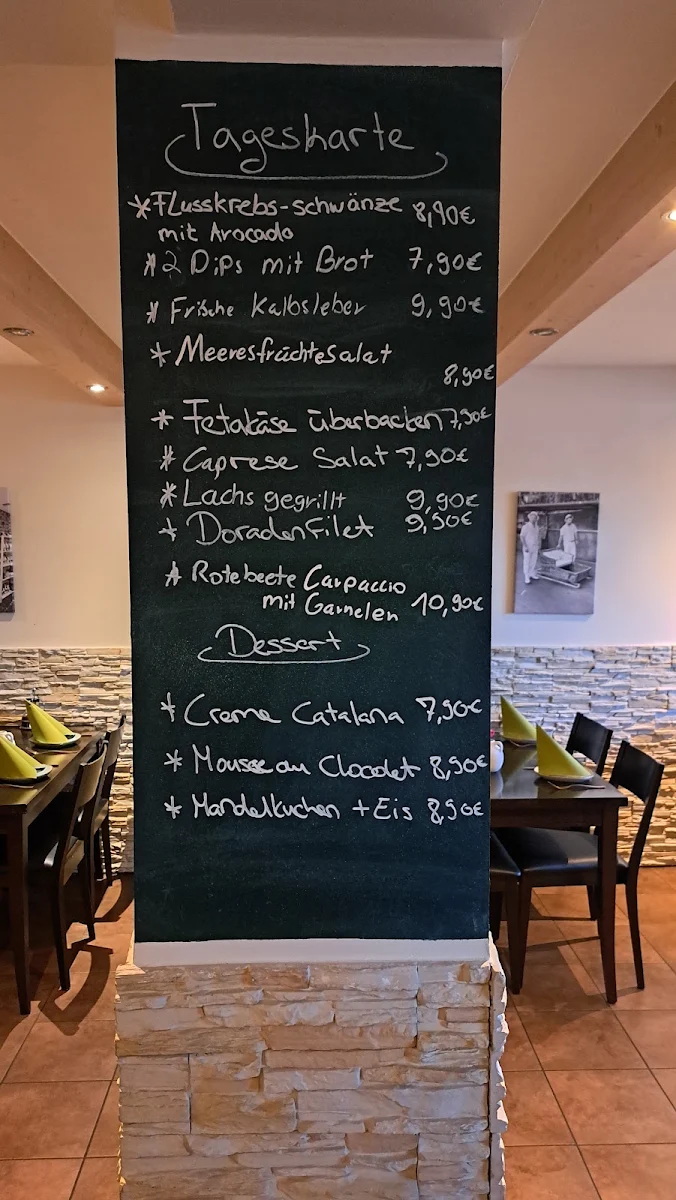 Tageskarte
*Flusskrebs-schwänze 8,90€
mit Avocado
* 2 Dips mit Brot 7,90€
* Frische Kalbsleber 9,90€
* Meeresfrüchtesalat
8,90€
* Fetakäse überbacken 7,90€
* Caprese Salat 7,90€
* Lachs gegrillt 9,90€
* Doradenfilet 9,90€
* Rotebeete Carpaccio
mit Garnelen 10,90€
Dessert
* Creme Catalana 7,90€
* Mousse au Chocolat 8,90€
* Mandelkuchen + Eis 8,90€